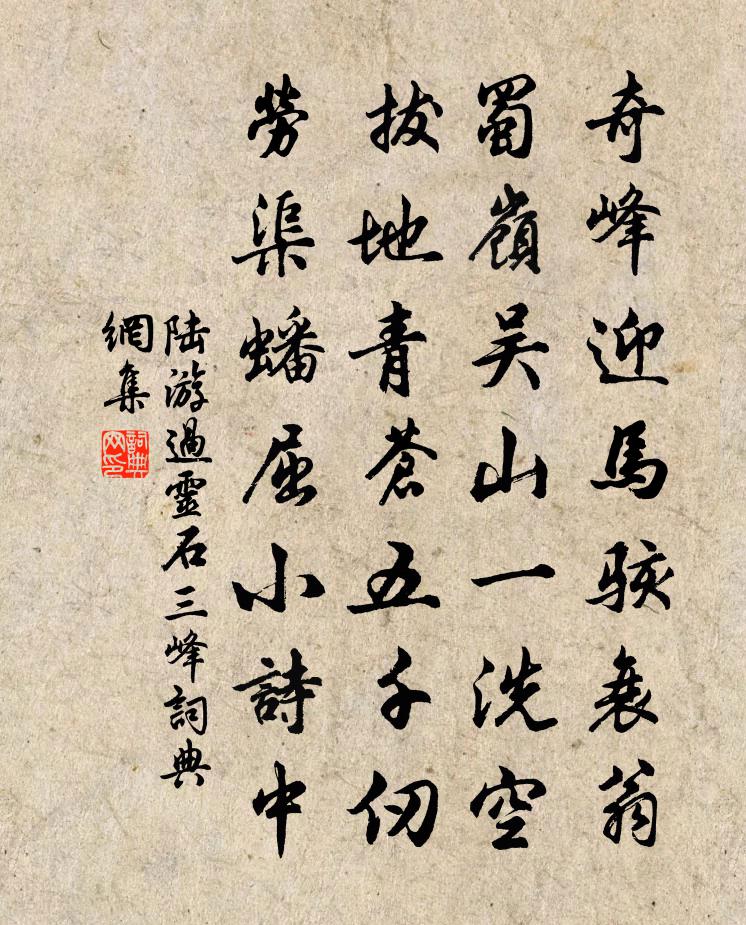 奇峰迎馬駭衰翁
蜀嶺吴山一洗空
拔地青蒼五千仞
勞渠蟠屈小詩中
陆游過靈石三峰詞典
網集
詞典網印